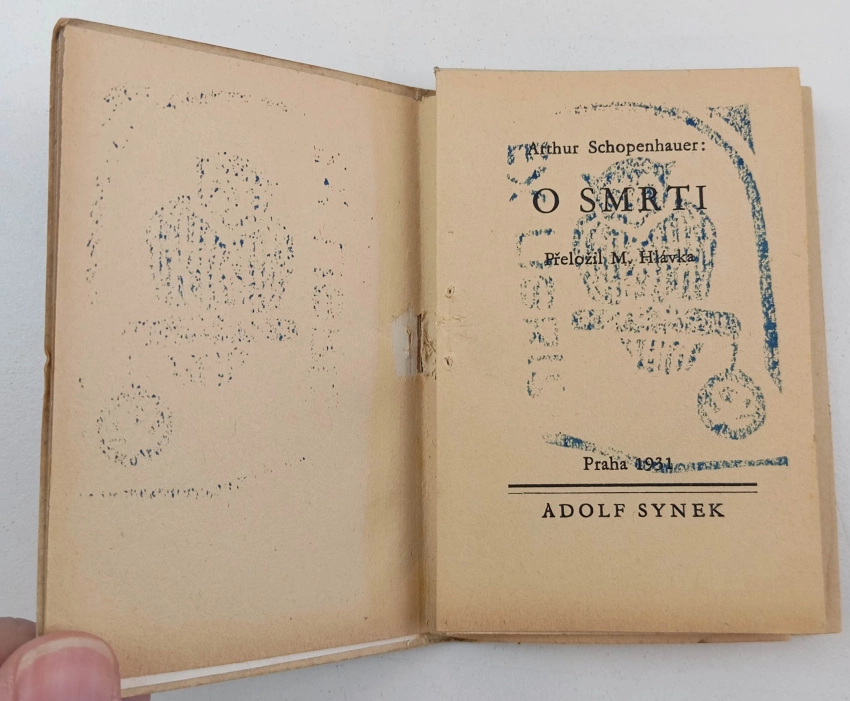 Arthur Schopenhauer:
O SMRTI
Přeložil M. Hlávka
Praha 1931
ADOLF SYNEK